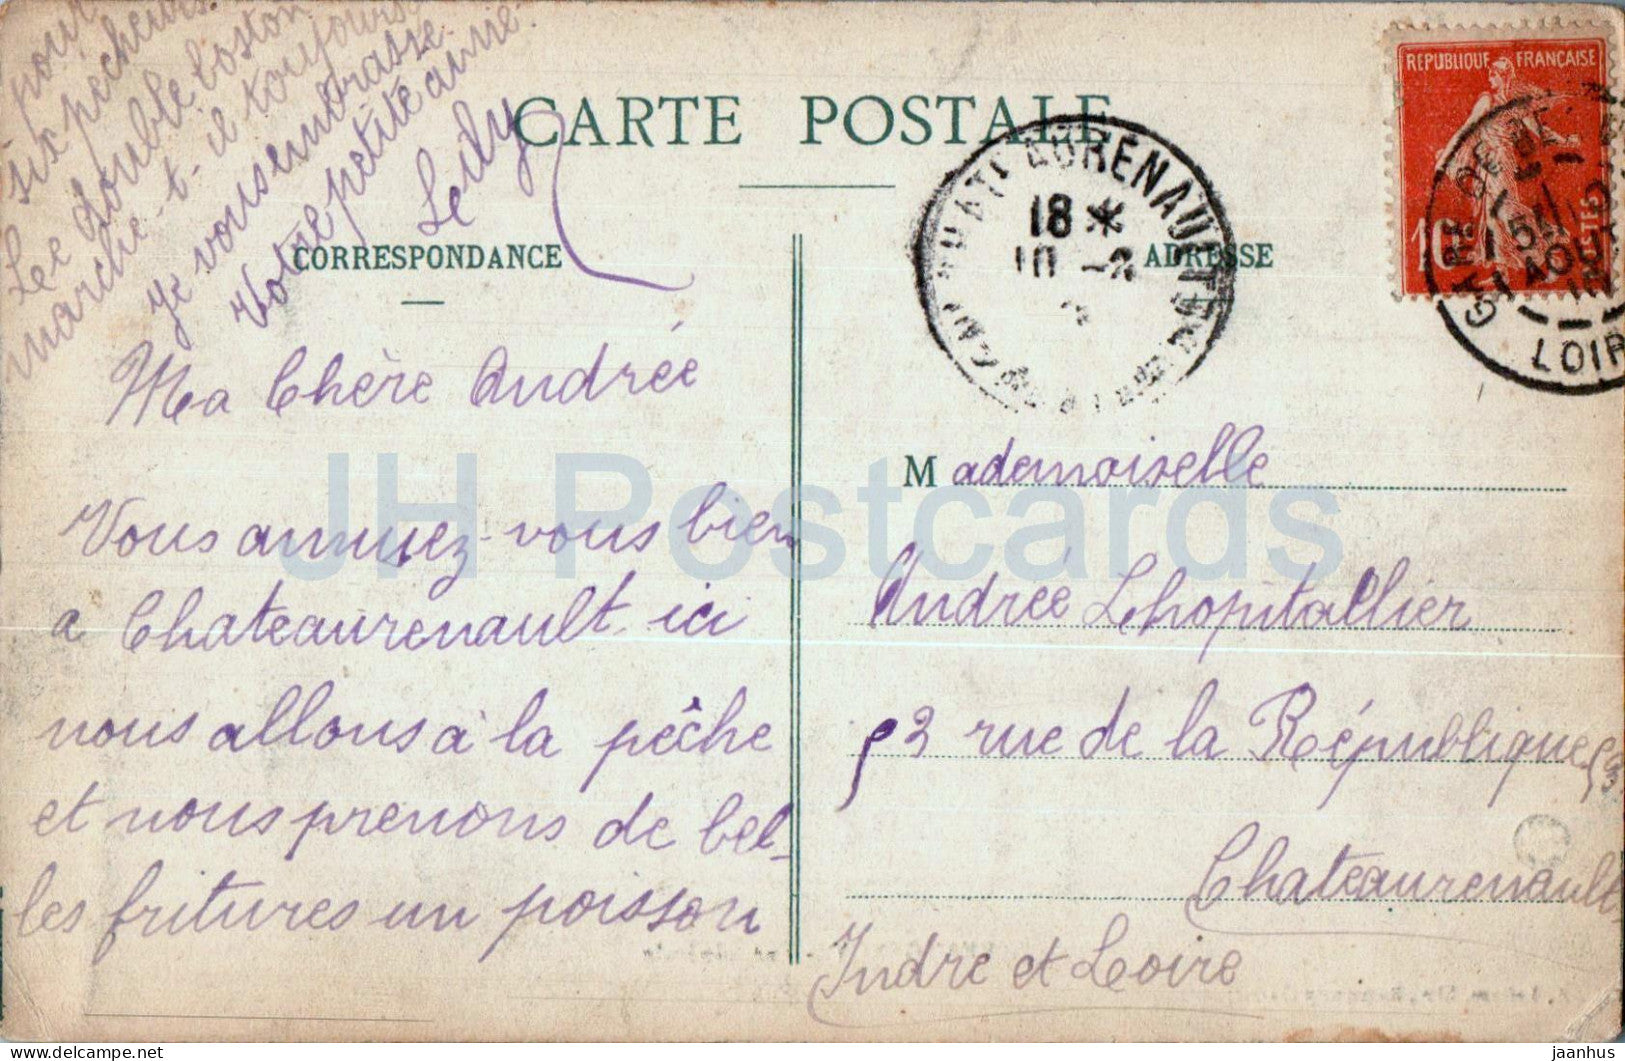 CARTE POSTALE
CORRESPONDANCE
ADRESSE
REPUBLIQUE FRANÇAISE
10
POSTES
GARE DE
15
AOUT
LOIR
18 *
10 - 2
RENAULT
Ma Chère Andrée
Vous amusez-vous bien
a Chateaurenault ici
nous allons à la pêche
et nous prenons de bel-
les fritures un poisson
pour
six pecheurs
Le double boston
marche-t-il toujours
Je vous embrasse
Votre petite amie
Mademoiselle
Andrée Lhopitallier
53 rue de la République 53
Chateaurenault
Indre et Loire
JH Postcards
jaanhus
delcampe.net